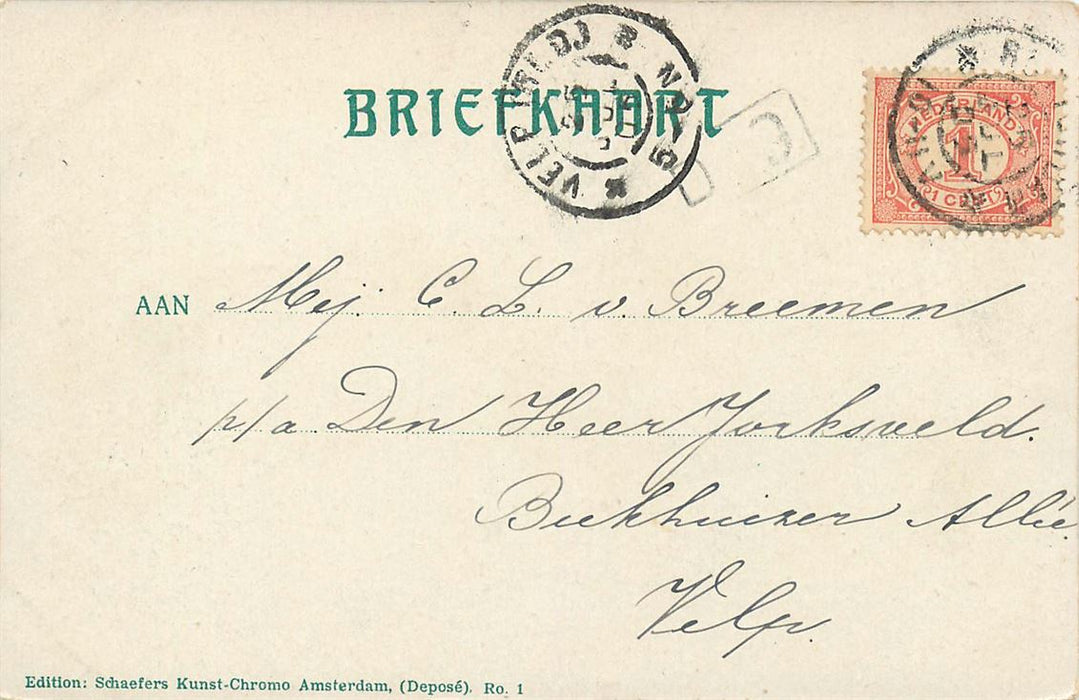 BRIEFKAART
NEDERLAND
1
1 CENT
AAN Mej. C. L. v. Breemen
p/a. Den Heer Jorksveld.
Beekhuizer Allée
Velp.
Edition: Schaefers Kunst-Chromo Amsterdam, (Deposé). Ro. 1